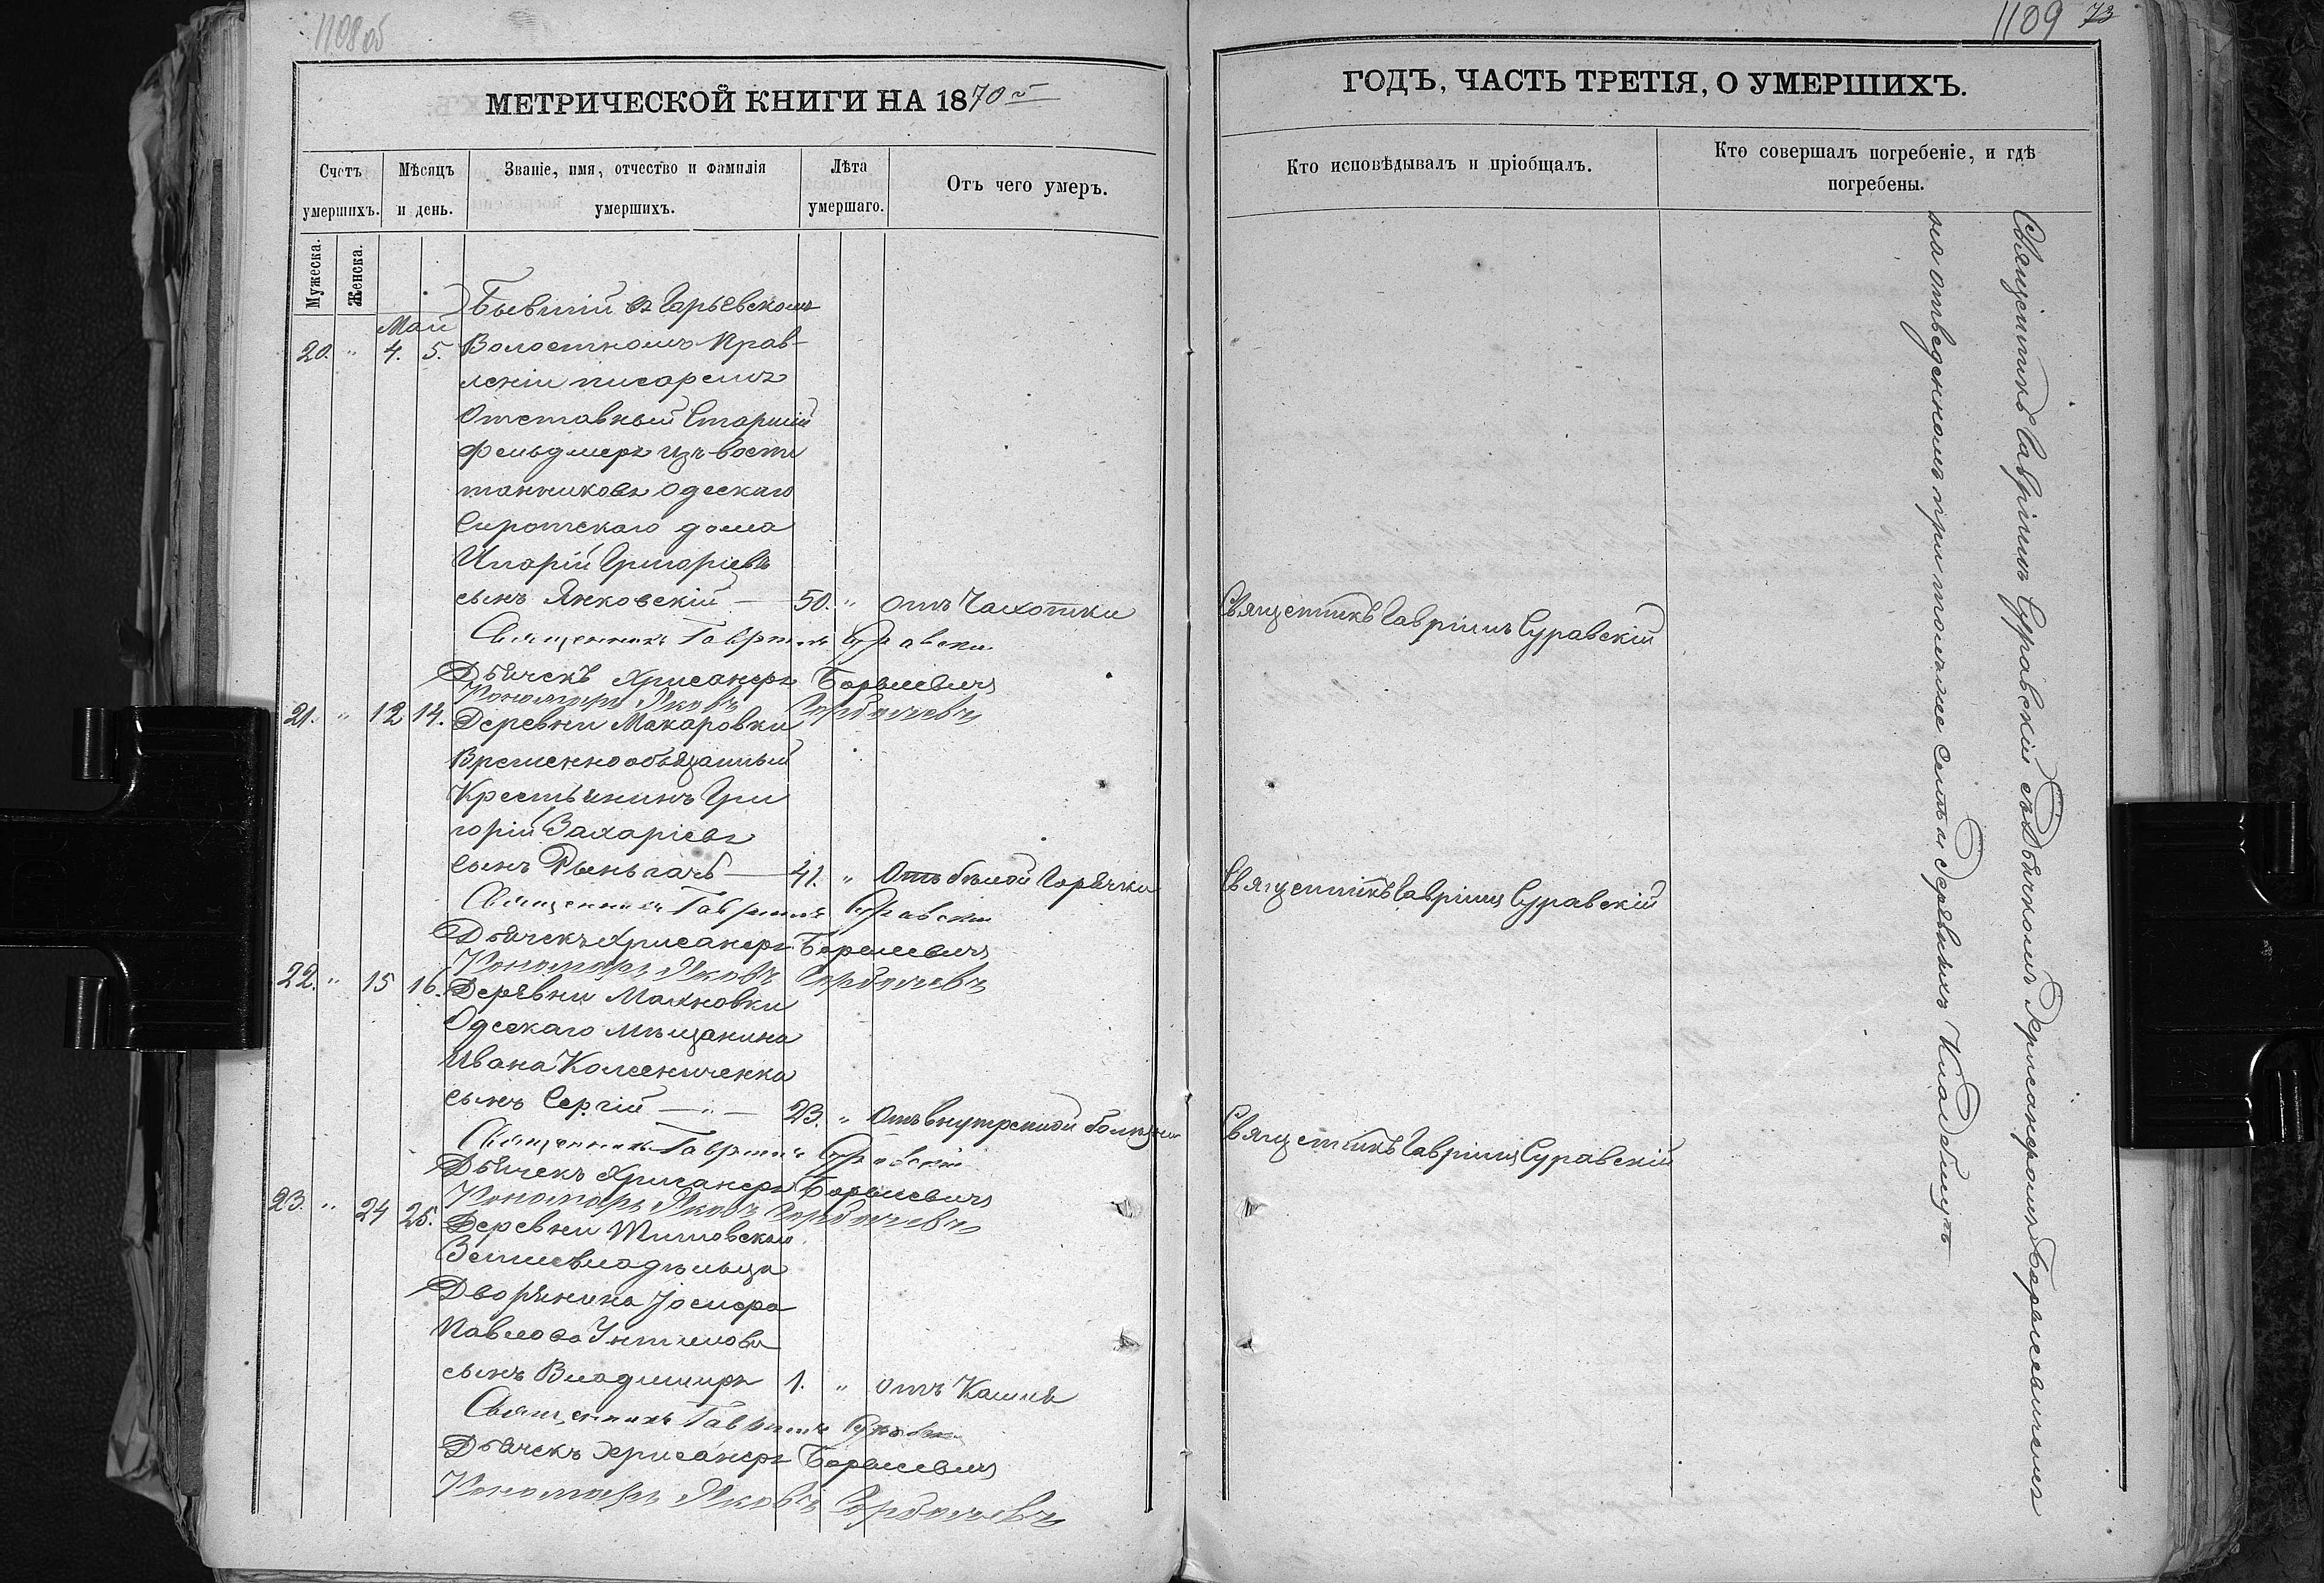 1108 об
МЕТРИЧЕСКОЙ КНИГИ НА 1870 г
Счетъ умершихъ.
Мѣсяцъ и день.
Званіе, имя, отчество и фамилія умершихъ.
Лѣта умершаго.
Отъ чего умеръ.
Мужеска.
Женска.
Май
Бывшій въ
20. " 4. 5. Волостномъ Прав-
леніи писаремъ
Отставный Старшій
Фельдшеръ изъ воспи
танниковъ Одескаго
Сиротскаго дома
Григоріевъ
сынъ Янковскій — 50. " отъ Чахотки
Священникъ Гавріилъ Суравскій
Дьячекъ Хрисанфъ
Пономарь Яковъ Горбачевъ
21. " 12 14. Деревни Макаровки
Временнообязанный
Крестьянинъ Гри
горій Захаріевъ
сынъ — 41. " Отъ бѣлой Горячки
Священникъ Гавріилъ Суравскій
Дьячекъ Хрисанфъ
Пономарь Яковъ Горбачевъ
22. " 15 16. Деревни Махновки
Одескаго мѣщанина
Ивана Колесниченка
сынъ Сергій — " — 23. " Отъ внутренной болѣзни
Священникъ Гавріилъ Суравскій
Дьячекъ Хрисанфъ
Пономарь Яковъ Горбачевъ
23. " 24 25. Деревни
Землевладѣльца
Дворянина Іосифа
Павлова
сынъ Владимиръ 1. " отъ Кашля
Священникъ Гавріилъ Суравскій
Дьячекъ Хрисанфъ
Пономарь Яковъ Горбачевъ
1109 73
ГОДЪ, ЧАСТЬ ТРЕТІЯ, О УМЕРШИХЪ.
Кто исповѣдывалъ и пріобщалъ.
Кто совершалъ погребеніе, и гдѣ погребены.
Священникъ Гавріилъ Суравскій
Священникъ Гавріилъ Суравскій
Священникъ Гавріилъ Суравскій
Священникъ Гавріилъ Суравскій съ Дьячкомъ Хрисанфомъ
на отведенномъ при томъ же Селѣ и деревняхъ Кладбищѣ